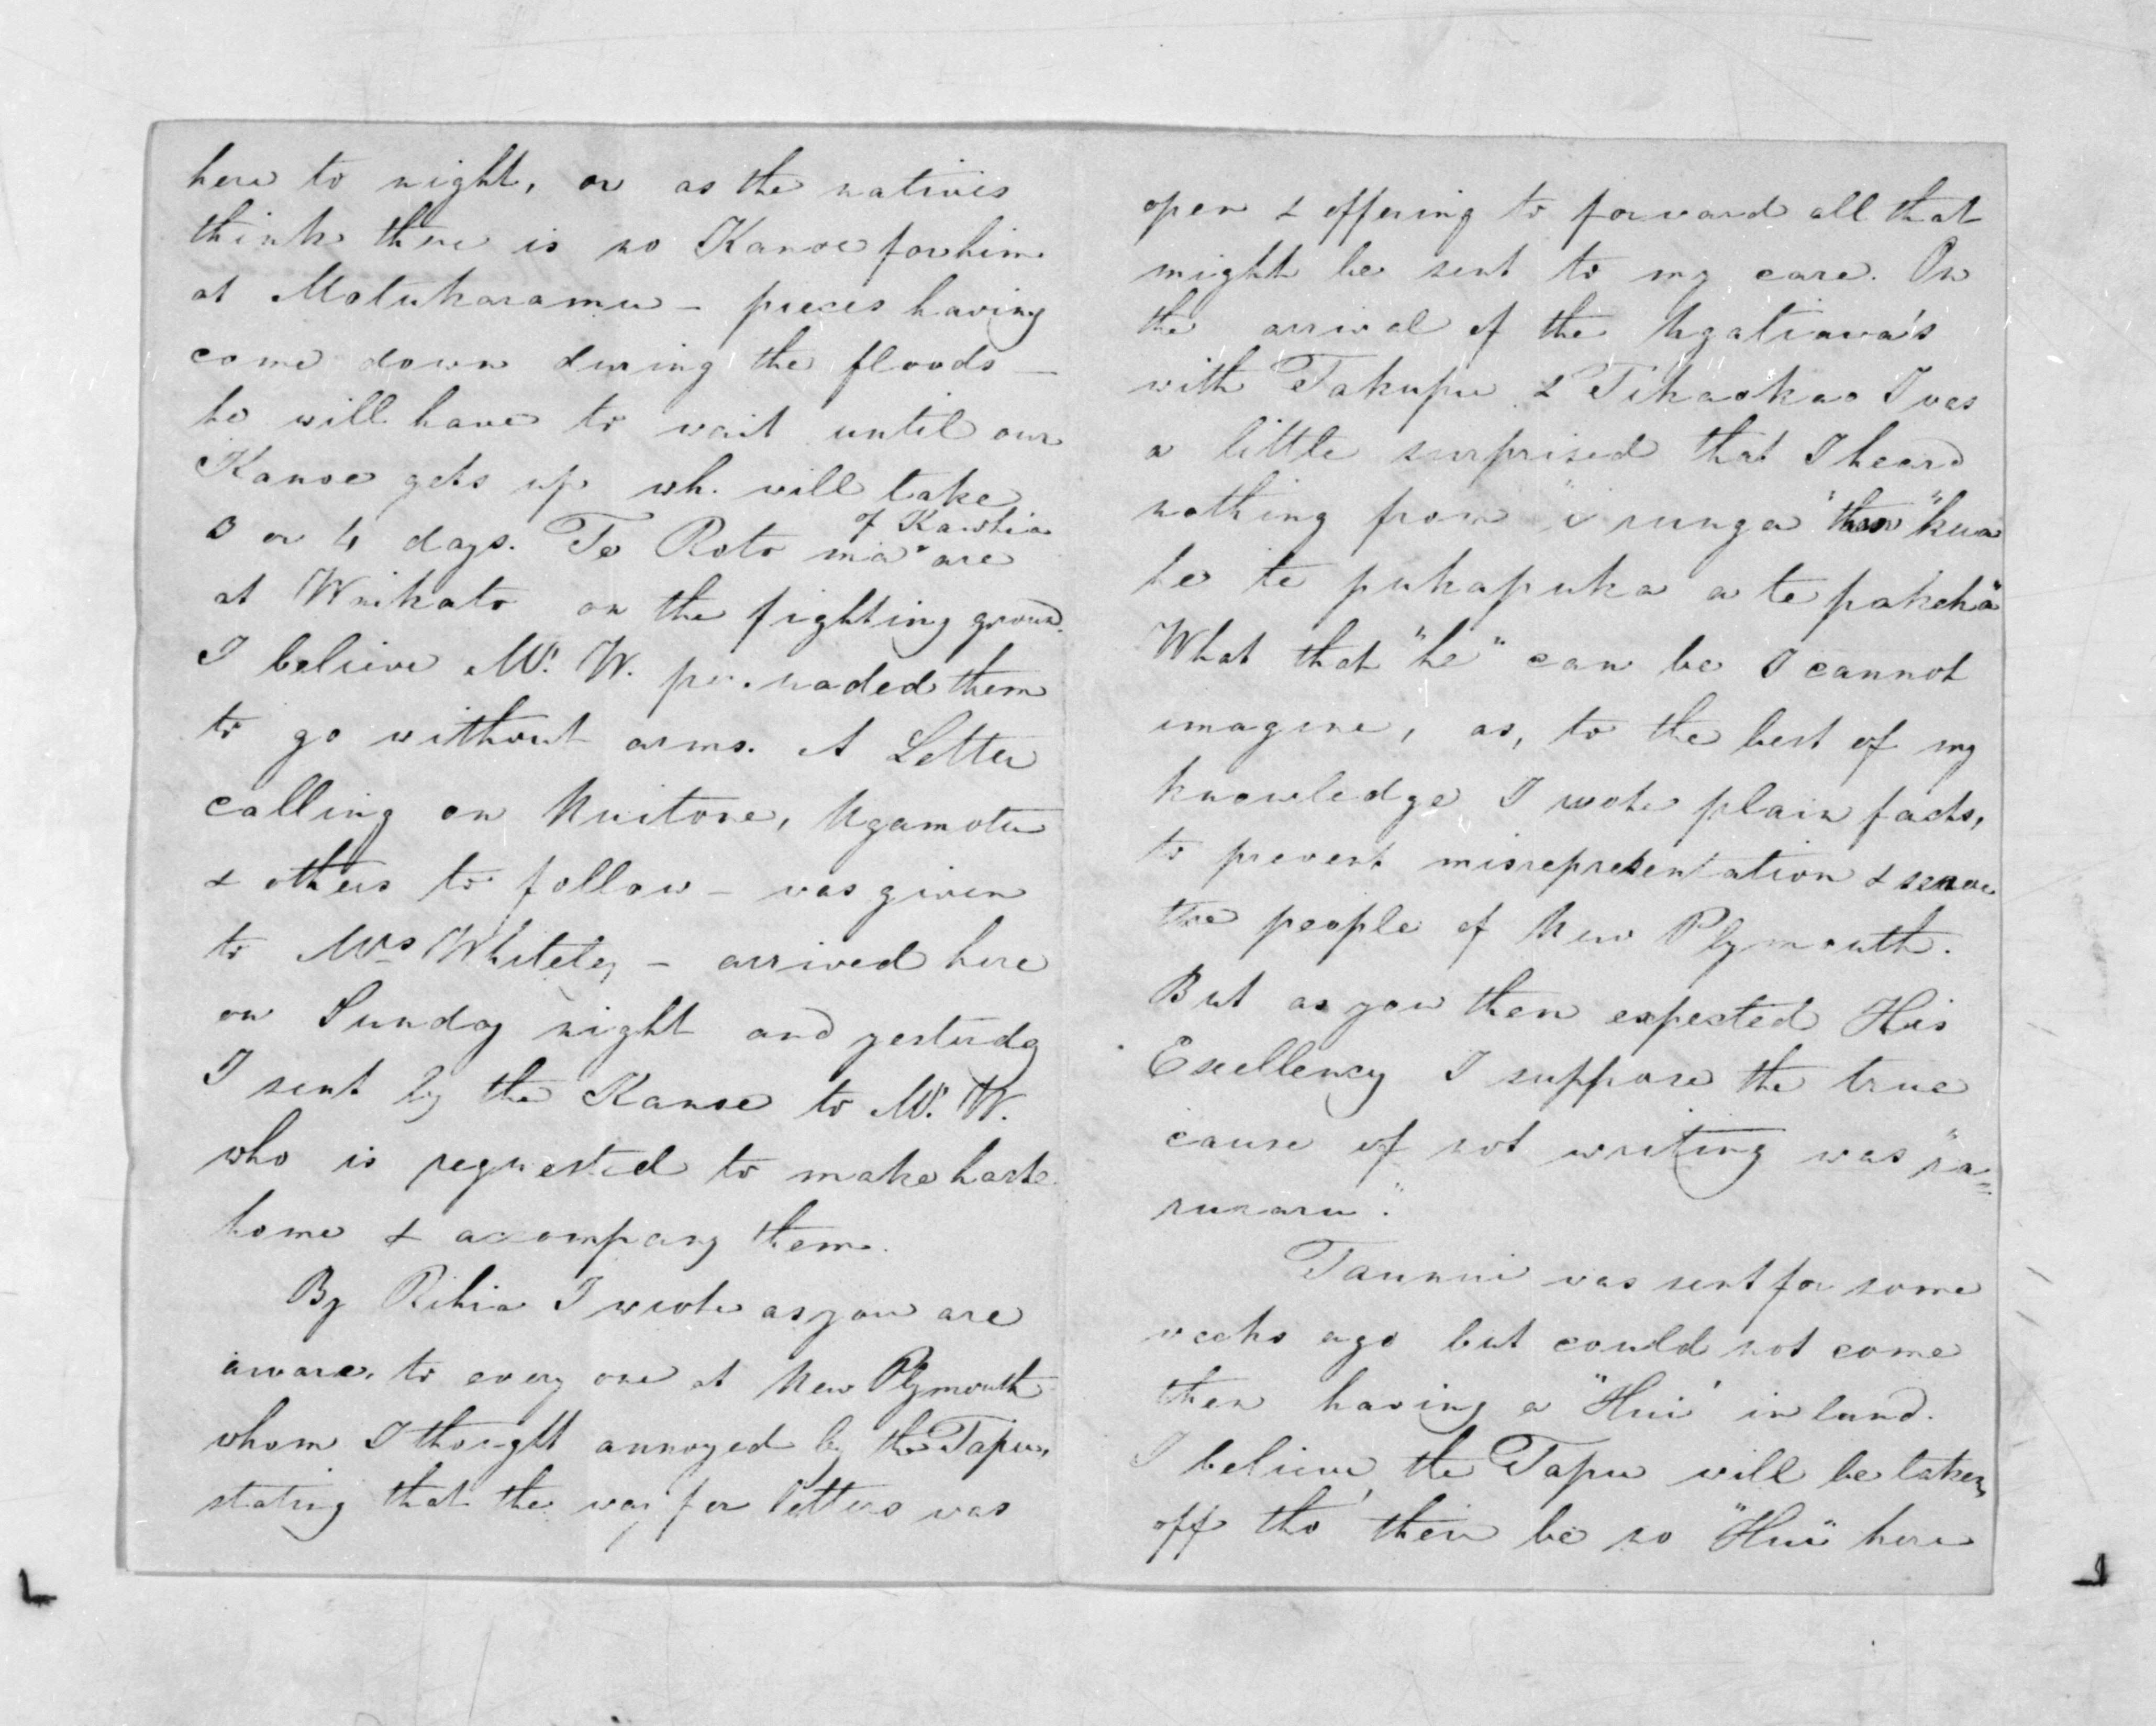 here to night, or as the natives
think there is no Kanoe for him
at Motukaramu - pieces having
come down during the floods -
he will have to wait until our
Kanoe gets up wh. will take
3 or 4 days. Te Roto ma of Kawhia are
at Waikato on the fighting ground.
I believe Mr. W. persuaded them
to go without arms. A Letter
calling on Nuitone, Ngamotu
& others to follow - was given
to Mrs Whiteley - arrived here
on Sunday night and yesterdy
I sent by the Kanoe to Mr. W.
who is requested to make haste
home & accompany them.
By Rihia I wrote as you are
aware, to every one at New Plymouth
whom I thought annoyed by the Tapu,
stating that the way for letters was
open & offering to forward all that
might be sent to my care. On
the arrival of the Ngatiawa's
with Takupu & Tikaokao I was
a little surprised that I heard
nothing from "i runga" than "kua
he te pukapuka a te pakeha"
What that "he" can be I cannot
imagine, as, to the best of my
knowledge I wote plain facts,
to prevent misrepresentation & serve
the people of New Plymouth.
But as you then expected His
Excellency I suppose the true
cause of not writing was "ra=
ruraru".
Taunui was sent for some
weeks ago but could not come
then having a "Hui" inland.
I believe, the Tapu will be taken
off tho' their be no "Hui" here